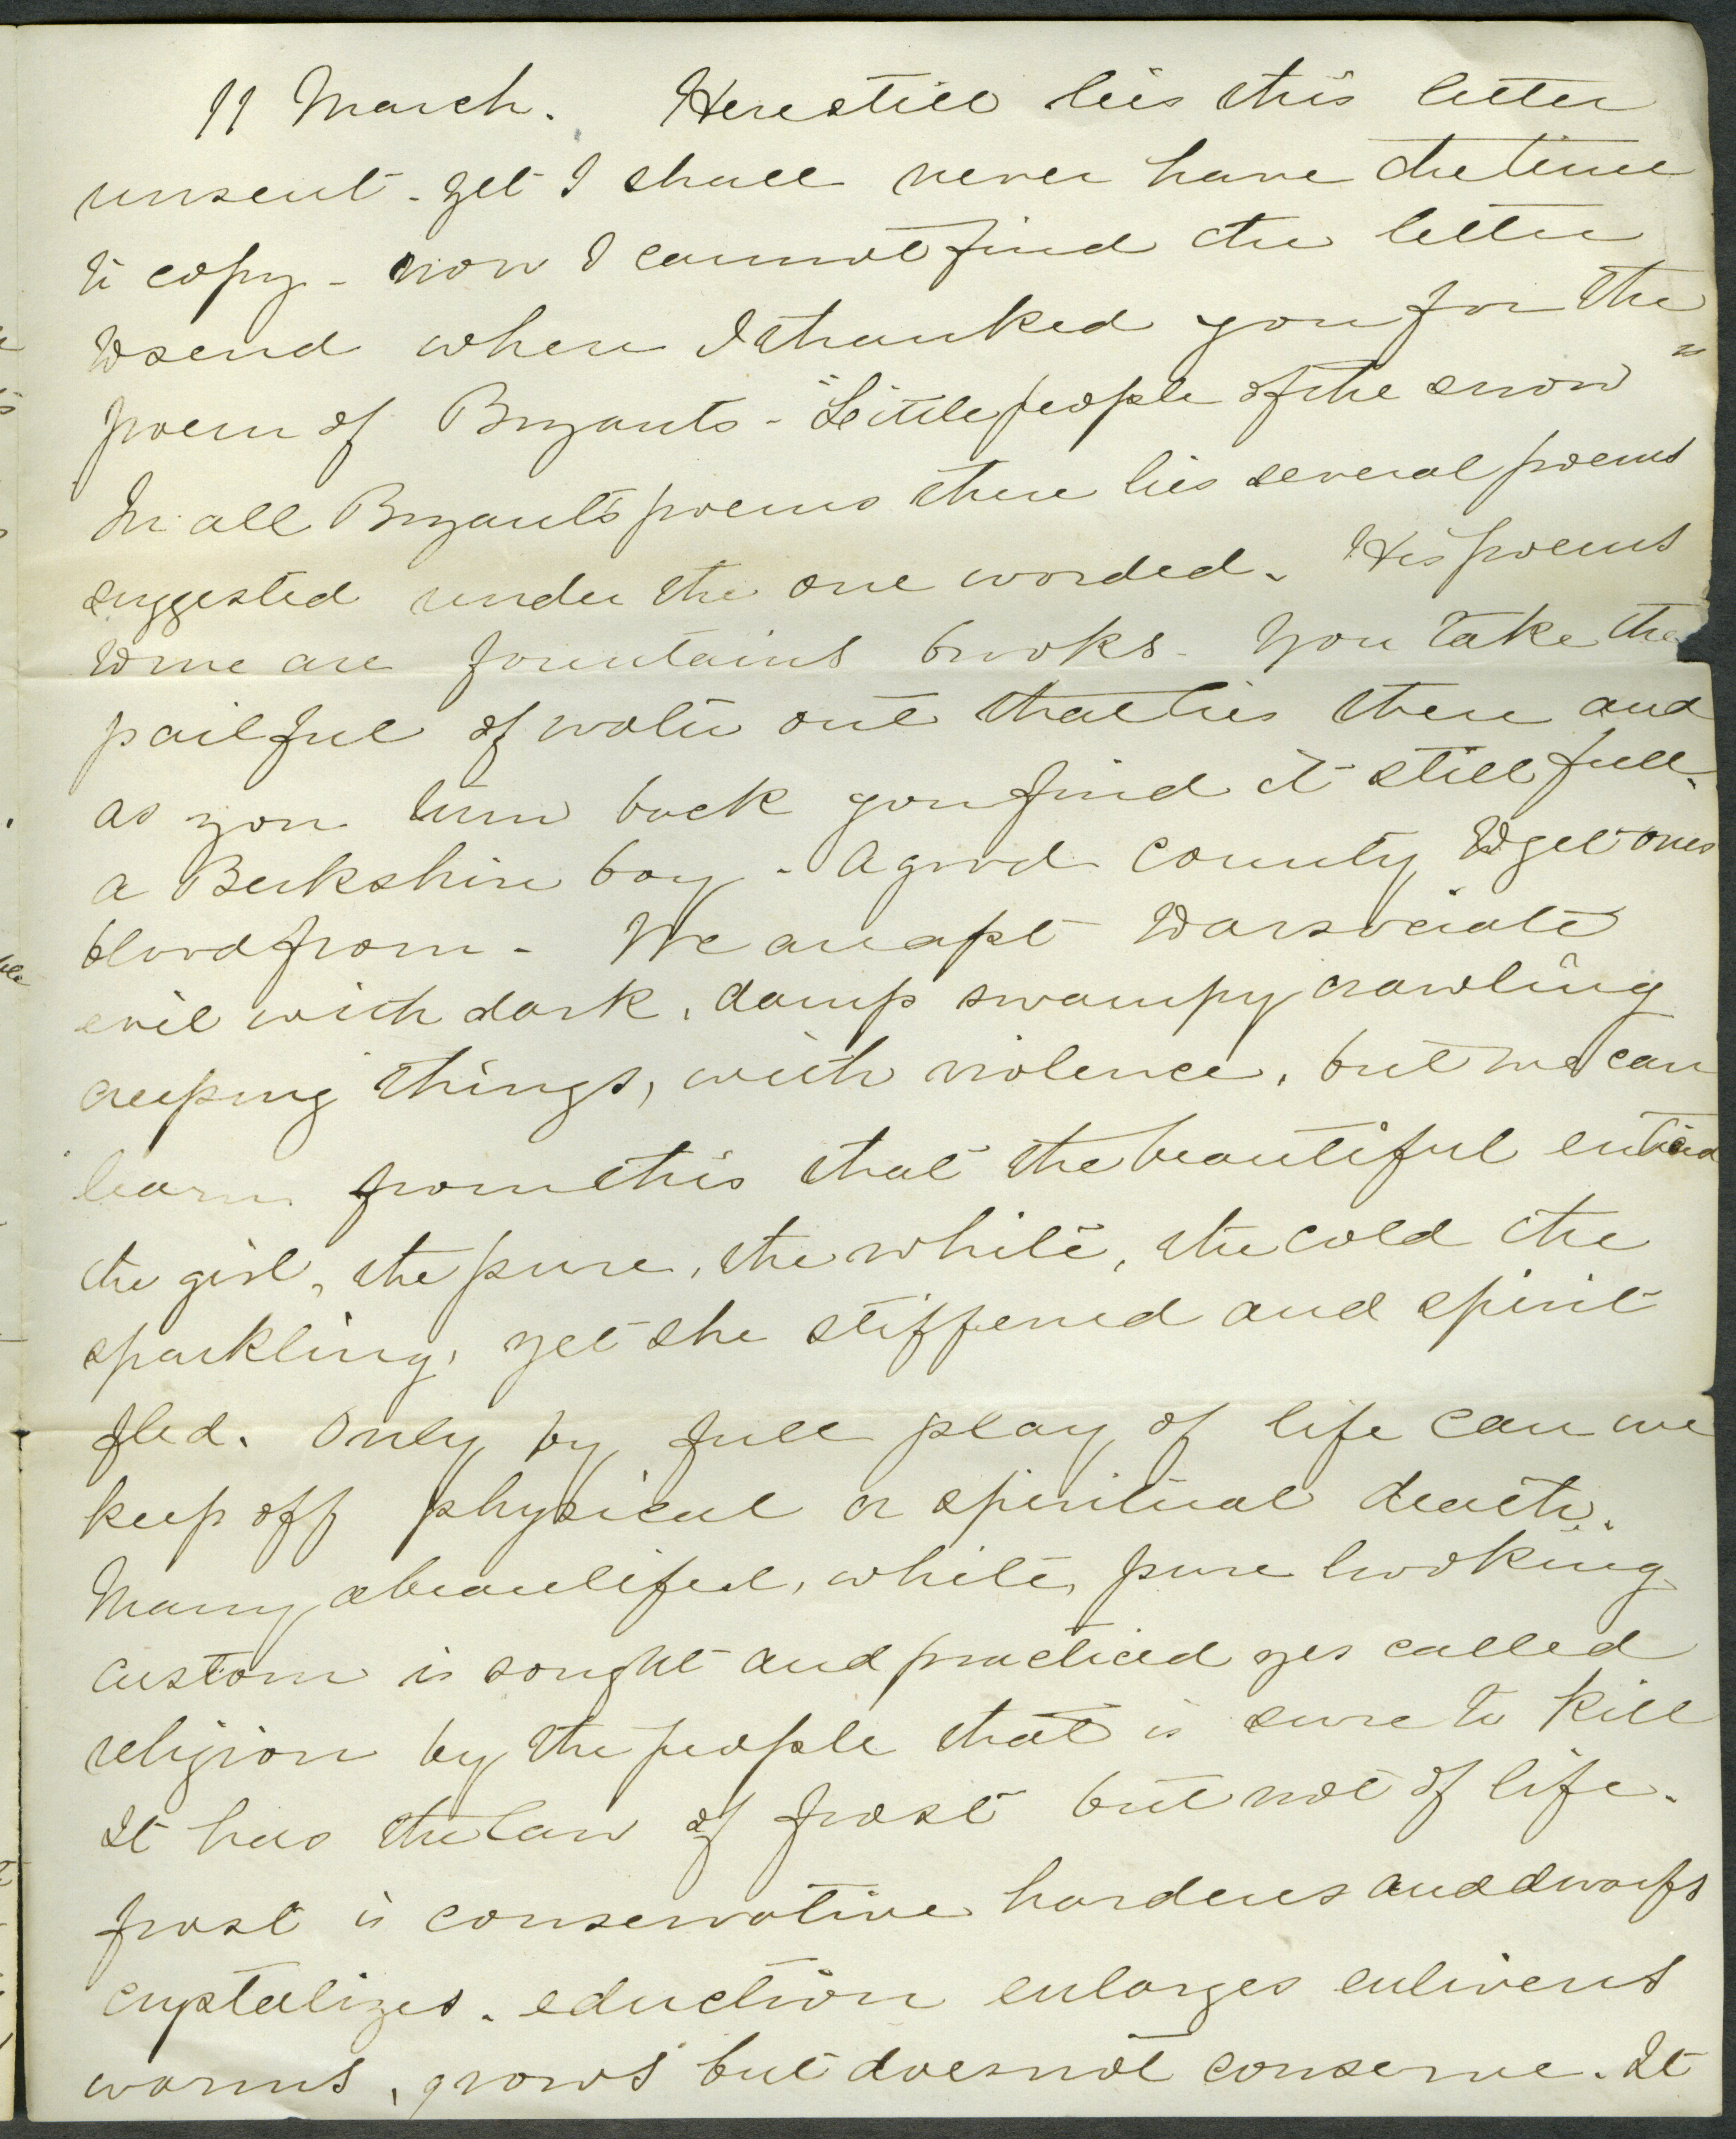 11 March. Here still lies this letter
unsent - yet I shall never have the time
to copy - now I cannot find the letter
to send where I thanked you for the
poem of Bryants - "Little people of the snow"
In all Bryant's poems there lies several poems
suggested under the one worded. His poems
to me are fountains brooks - You take the
pail full of water out that lies there and
as you turn back you find it still full.
a Berkshire boy - a good county to get ones
blood from - We are apt to associate
evil with dark, damp swampy crawling
creeping things, with violence, but we can
learn from this that the beautiful enticed
the girl, the pure, the white, the cold the
sparkling, yet she stiffened and spirit
fled. Only by full play of life can we
keep off physical or spiritual death.
Many a beautiful, white, pure looking
custom is sought and practiced yes called
religion by the people that is sure to kill
It has the law of frost but not of life.
frost is conservative hardens and dwarfs
cryptalizes. eduction enlarges enlivens
warms, grows but does not conserve. It